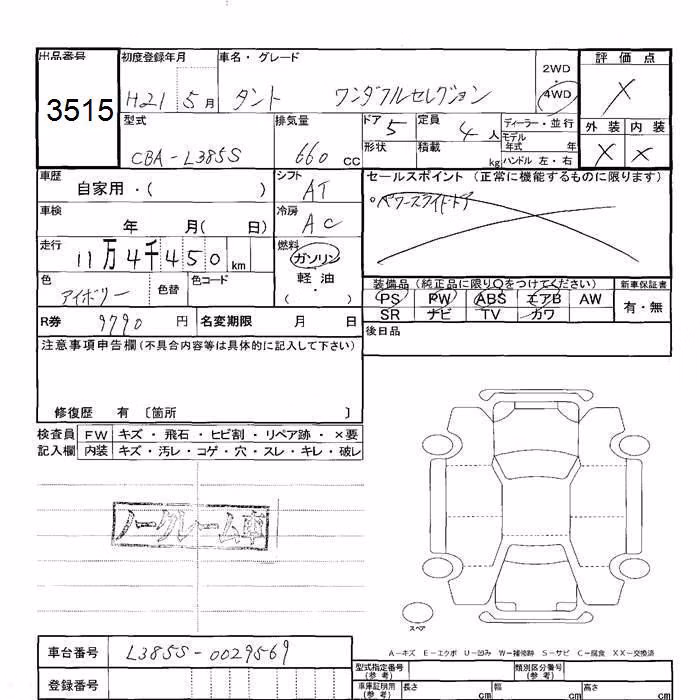 出品番号
3515
初度登録年月
車名・グレード
評価点
H21 5月
タント ワンダフルセレクション
2WD
・
4WD
X
型式
排気量
ドア
定員
ディーラー・並行
外装 内装
CBA-L385S
660cc
5
4人
モデル年式 年
X X
形状
積載 kg
ハンドル 左・右
車歴
自家用・( )
シフト
AT
セールスポイント (正常に機能するものに限ります)
○パワースライドドア
車検
年 月( 日)
冷房
AC
走行
11万4千450km
燃料
ガソリン
軽油
・( )
色
アイボリー
色替
色コード
装備品 (純正品に限り○をつけてください)
新車保証書
PS PW ABS エアB AW
有・無
SR ナビ TV カワ
R券 9790円
名変期限 月 日
後日品
注意事項申告欄(不具合内容等は具体的に記入して下さい)
修復歴 有 〔箇所 〕
検査員記入欄
FW キズ・飛石・ヒビ割・リペア跡・×要
内装 キズ・汚レ・コゲ・穴・スレ・キレ・破レ
ノークレーム車
スペア
A－キズ E－エクボ U－凹み W－補修跡 S－サビ C－腐食 XX－交換済
車台番号 L385S-0029569
登録番号
型式指定番号(参考)
類別区分番号(参考)
車庫証明用(参考) 長さ cm 幅 cm 高さ cm